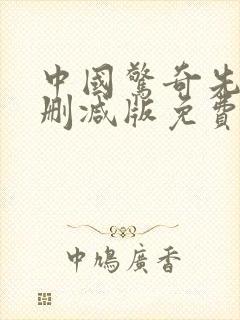 中國驚奇先
刪減版免費
中鳩廣香